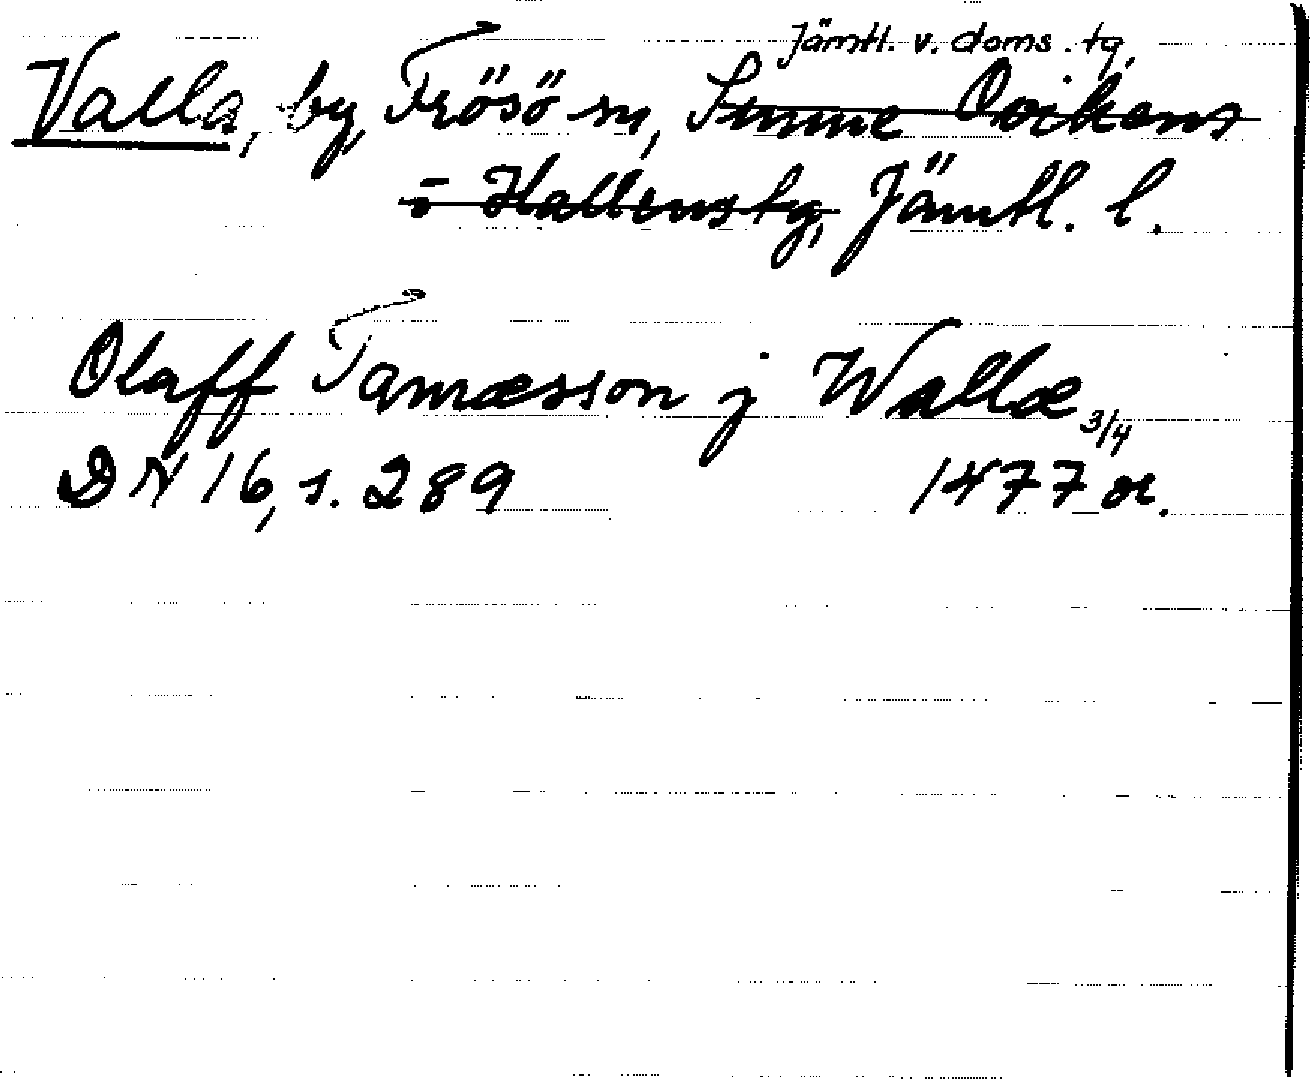 Jämtl. v. doms. tg.
Valla, by, Frösö sn, Sunne Ovikens
o Hallens tg, Jämtl. l.
Olaff Tamæsson j Wallæ
3/4
DN 16, s. 289 1477 or.